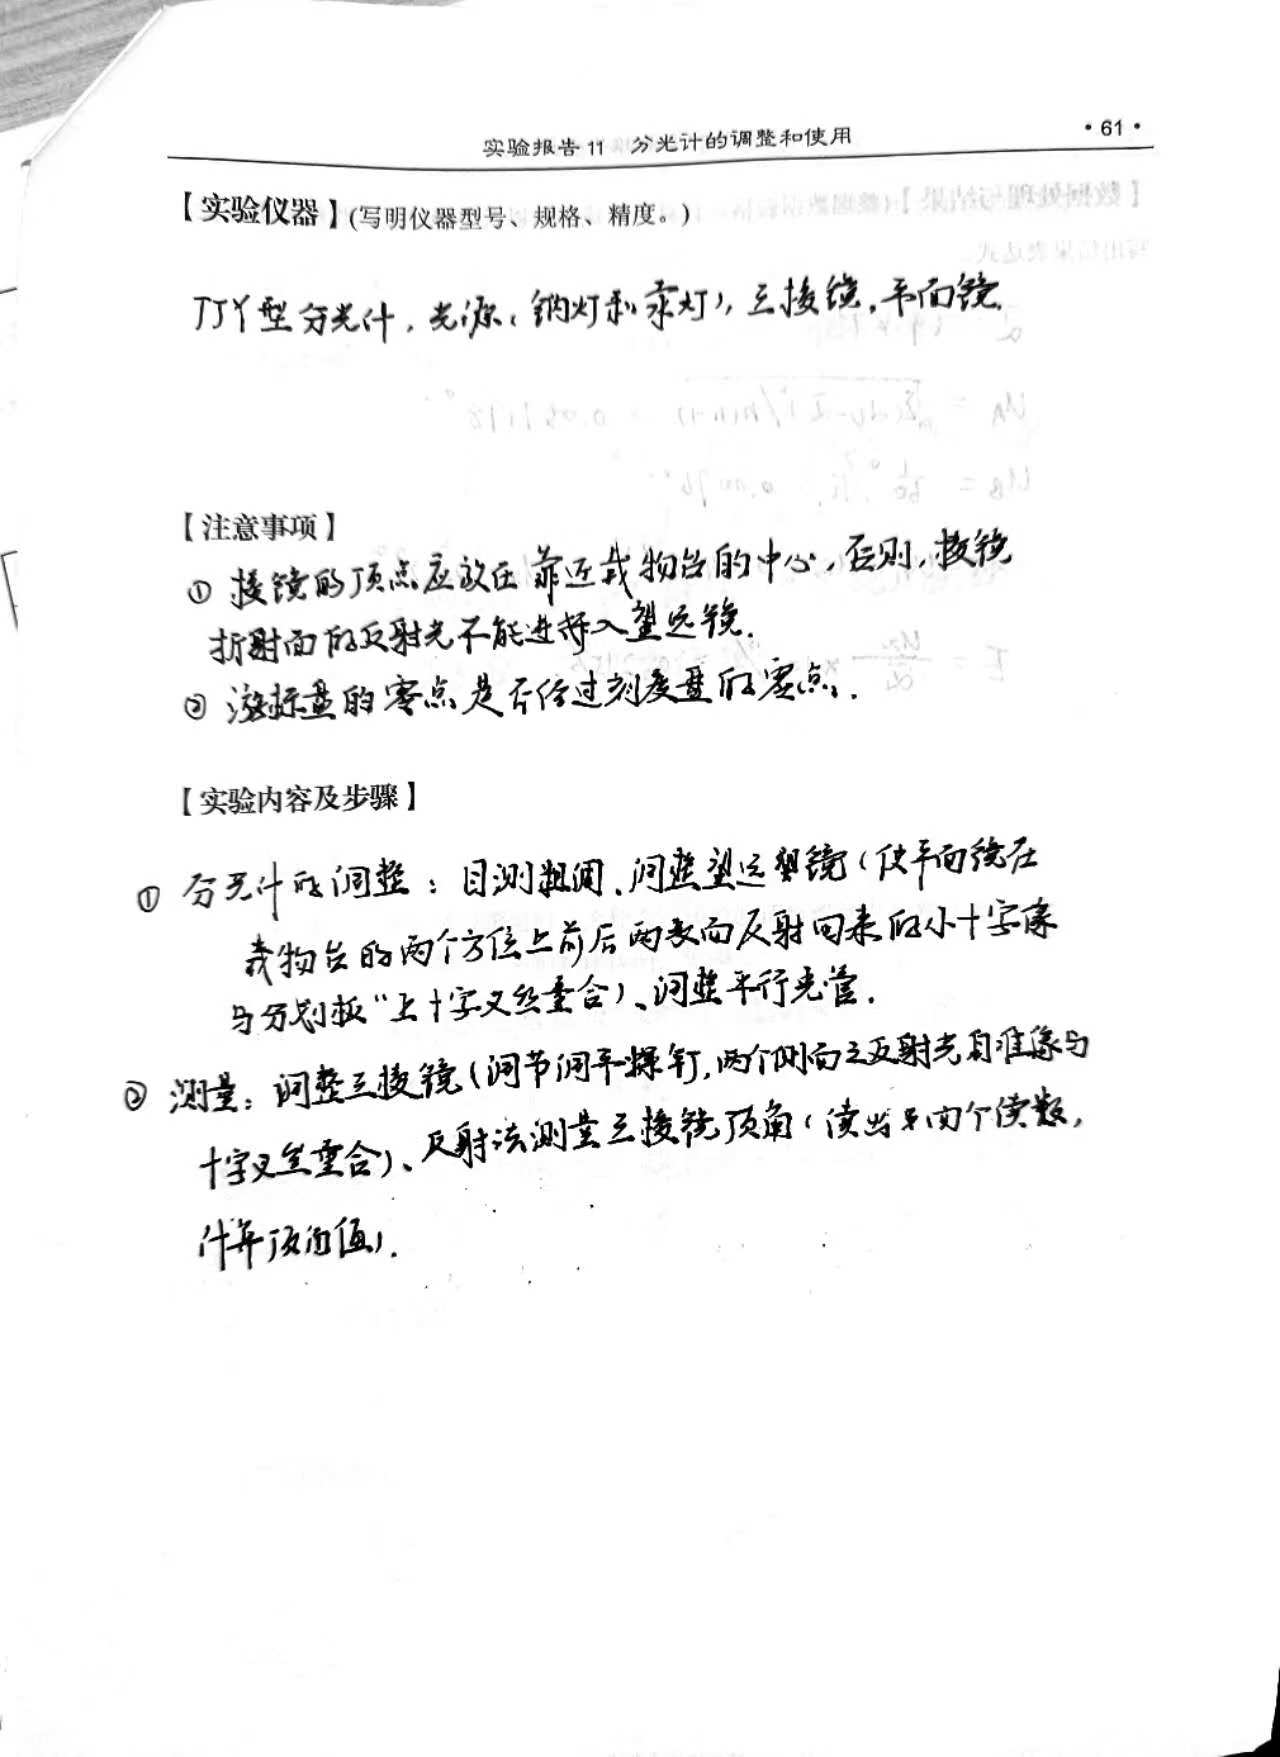 实验报告 11 分光计的调整和使用
• 61 •
【实验仪器】(写明仪器型号、规格、精度。)
JJY型分光计，光源（钠灯和汞灯），三棱镜，平面镜
【注意事项】
① 棱镜的顶点应放在靠近载物台的中心，否则，棱镜
折射面的反射光不能进入望远镜．
② 游标盘的零点是否经过刻度盘的零点．
【实验内容及步骤】
① 分光计的调整：目测粗调、调整望远镜（使平面镜在
载物台的两个方位上前后两表面反射回来的小十字像
与分划板“上十字叉丝重合）、调整平行光管．
② 测量：调整三棱镜（调节调平螺钉，两个侧面之反射光自准像与
十字叉丝重合）、反射法测量三棱镜顶角（读出 两个读数，
计算顶角值）．